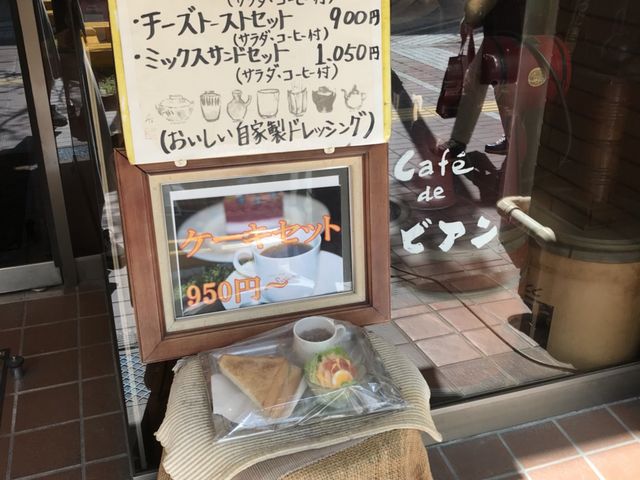 (サラダ・コーヒー付)
・チーズトーストセット 900円
(サラダ・コーヒー付)
・ミックスサンドセット 1,050円
(サラダ・コーヒー付)
(おいしい自家製ドレッシング)
Café
de
ビアン
ケーキセット
950円～